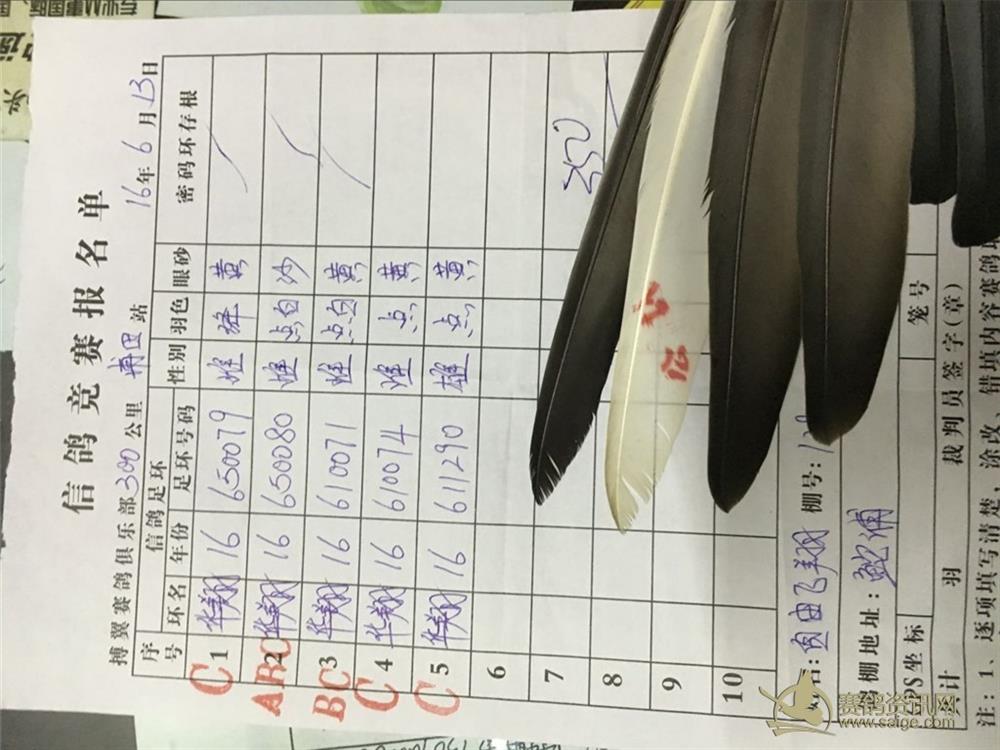 信鸽竞赛报名单
搏翼赛鸽俱乐部300公里 莆田 站 16年6月13日
序号 信鸽足环 性别 羽色 眼砂 密码环存根
环名 年份 足环号码
C 1 华翔 16 650079 雌 绛 黄
ABC 2 华翔 16 650080 雌 点白 沙
BC 3 华翔 16 610071 雌 点白 黄
C 4 华翔 16 610074 雌 点 黄
C 5 华翔 16 611290 雄 点 黄
6
7 350
8
9
10
名:自由飞翔 棚号:
鸽棚地址:鲍浦
GPS坐标 笼号
共计 羽 裁判员签字(章)
注:1、逐项填写清楚,涂改、错填内容赛鸽
赛鸽资讯网
www.saige.com